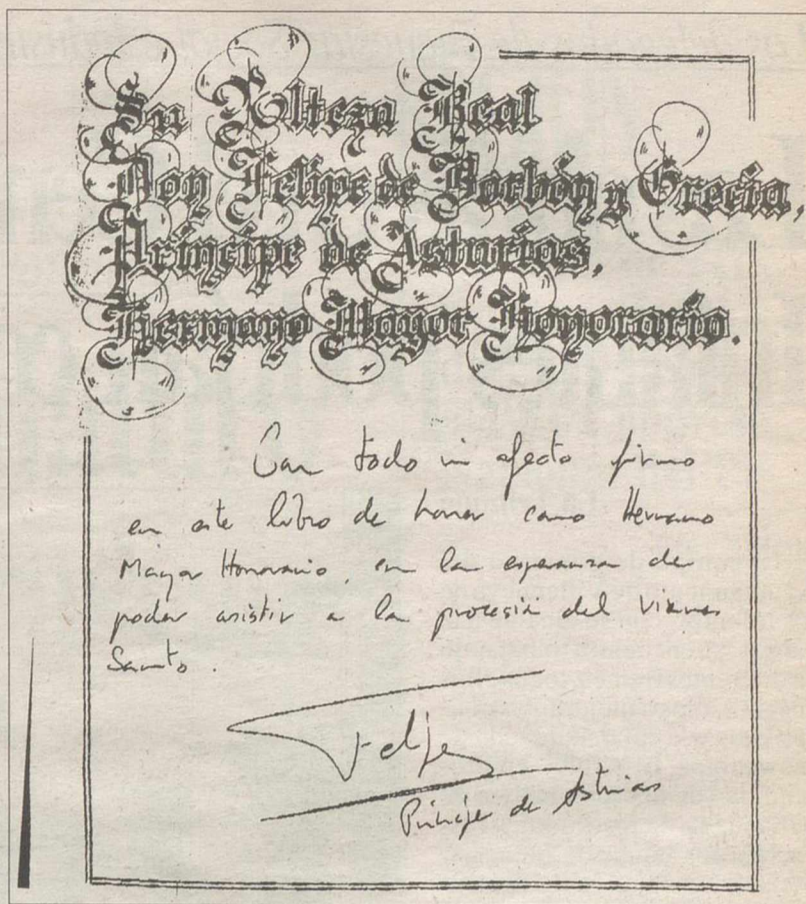 Su Alteza Real
Don Felipe de Borbón y Grecia,
Príncipe de Asturias,
Hermano Mayor Honorario.
Con todo mi afecto firmo
en este libro de honor como Hermano
Mayor Honorario, en la esperanza de
poder asistir a la procesión del Viernes
Santo.
Felipe
Príncipe de Asturias